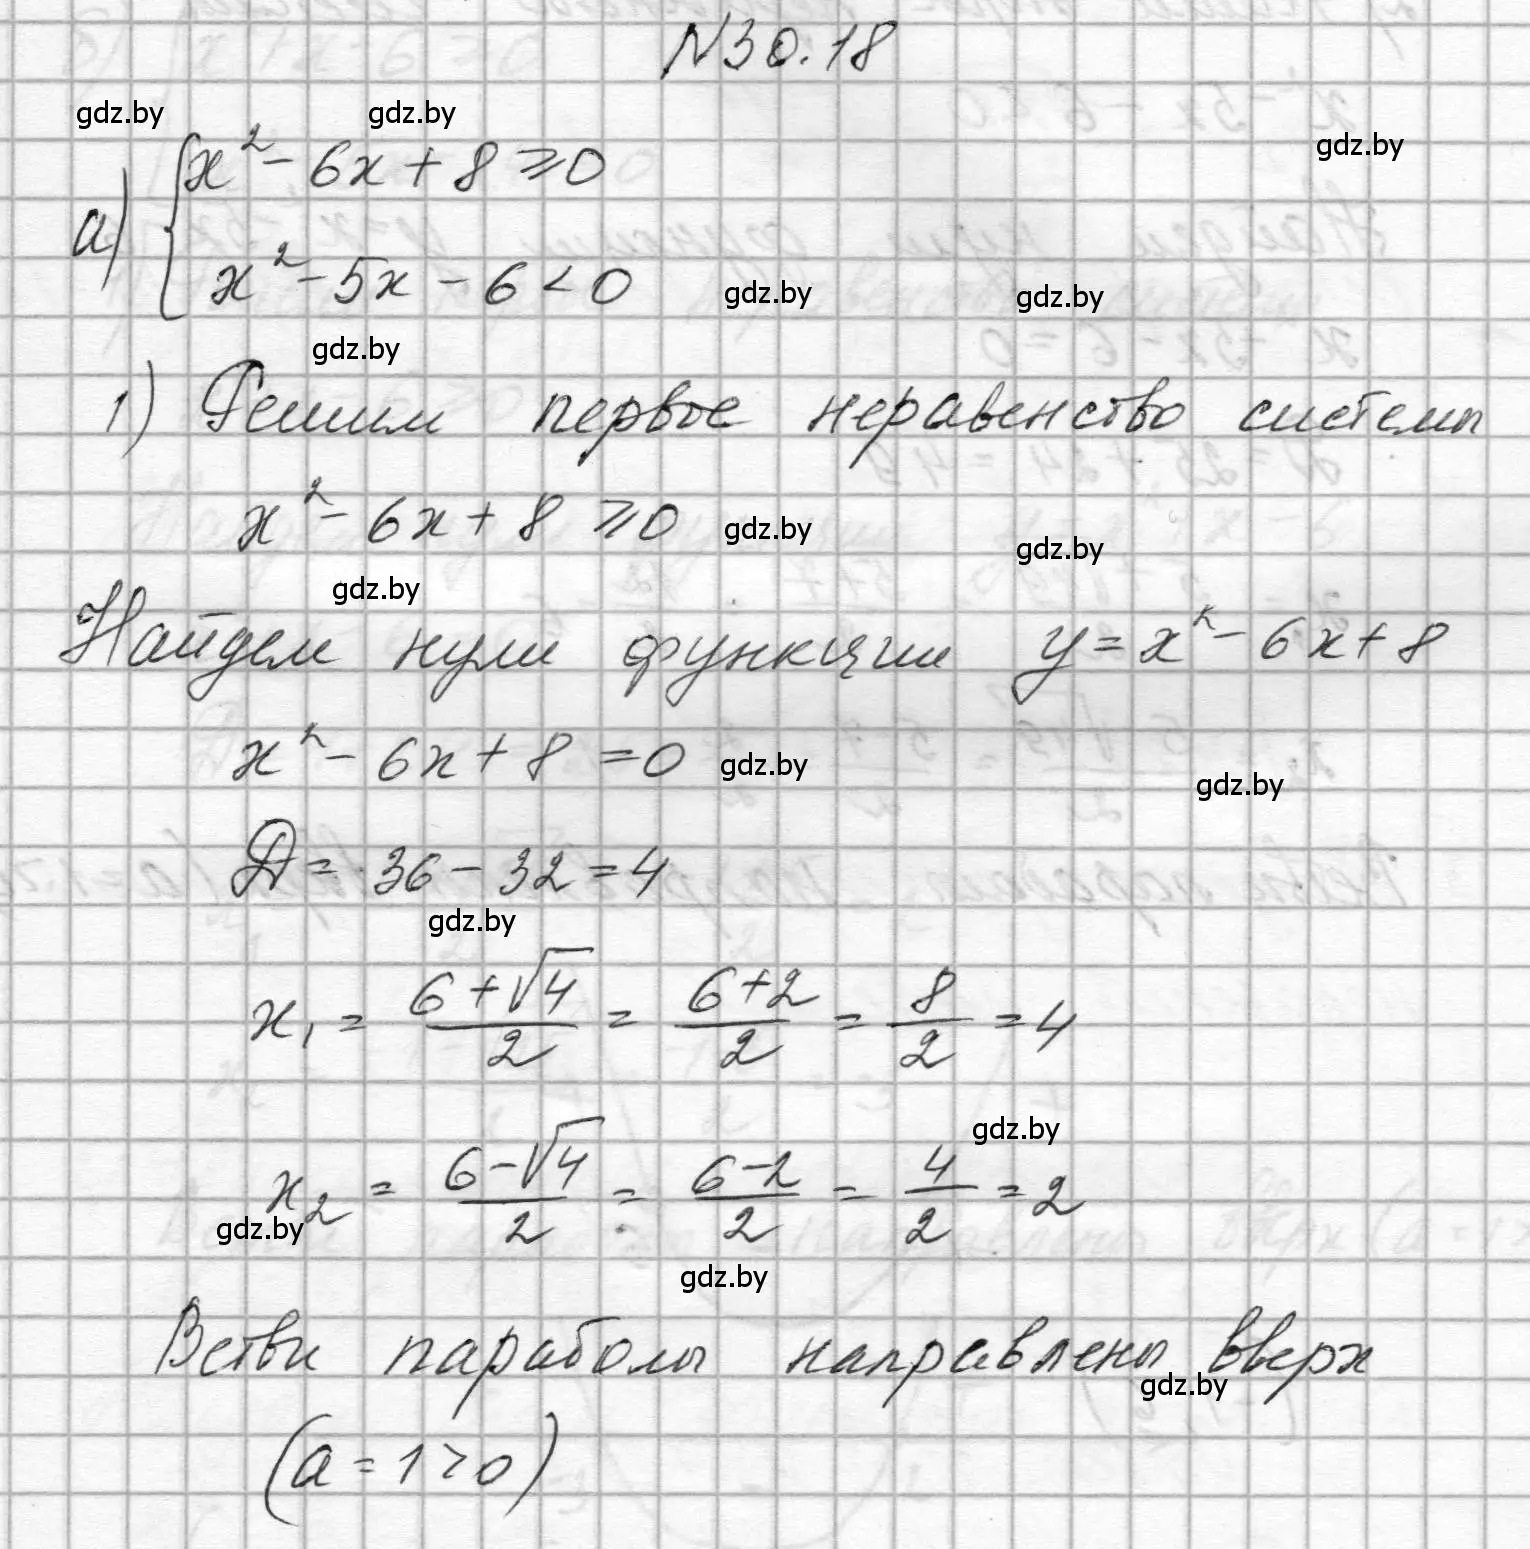 N30.18
gdz.by gdz.by
gdz.by
а) { x² - 6x + 8 ⩾ 0
x² - 5x - 6 < 0
gdz.by gdz.by
gdz.by
1) Решим первое неравенство системы
x² - 6x + 8 ⩾ 0
gdz.by gdz.by
gdz.by
Найдем нули функции y = x² - 6x + 8
x² - 6x + 8 = 0
gdz.by gdz.by
Д = 36 - 32 = 4
gdz.by
x₁ = (6 + √4)/2 = (6+2)/2 = 8/2 = 4
gdz.by
x₂ = (6 - √4)/2 = (6-2)/2 = 4/2 = 2
gdz.by
gdz.by
Ветви параболы направлены вверх
gdz.by
(a = 1 > 0)